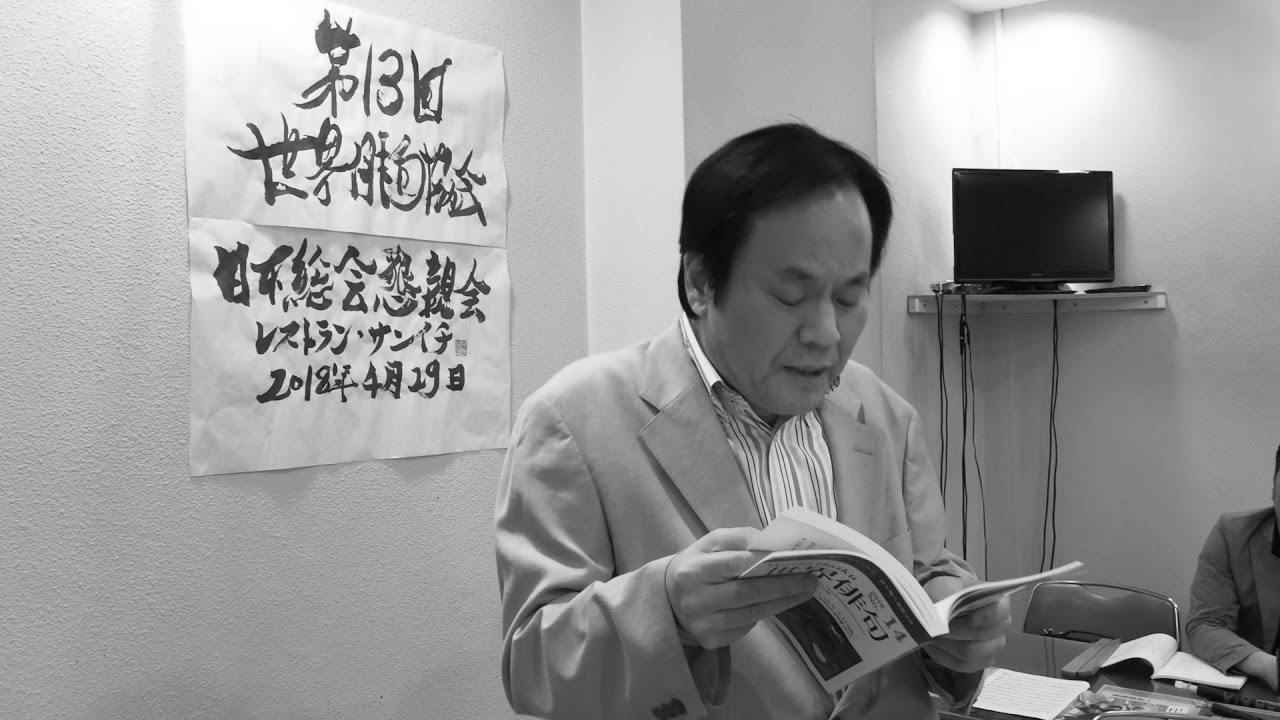 第13回
世界俳句協会
日本総会懇親会
レストラン・サンイチ
2018年4月29日
世界俳句
2018
No
14